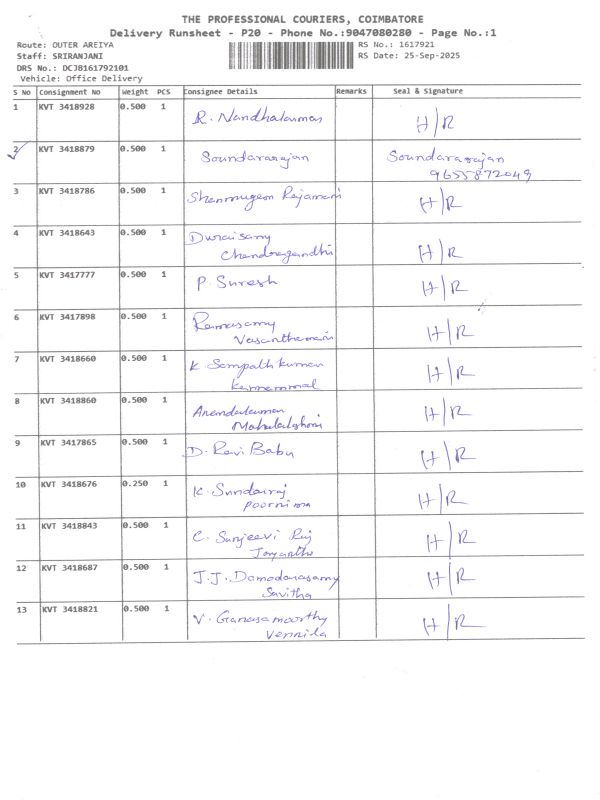 THE PROFESSIONAL COURIERS, COIMBATORE
Delivery Runsheet - P20 - Phone No.:9047080280 - Page No.:1
Route: OUTER AREIYA RS No.: 1617921
Staff: SRIRANJANI RS Date: 25-Sep-2025
DRS No.: DCJB161792101
Vehicle: Office Delivery
S No Consignment No Weight PCS Consignee Details Remarks Seal & Signature
1 KVT 3418928 0.500 1 R. Nandhakumar H/R
2 KVT 3418879 0.500 1 Soundararajan Soundararajan
9655872049
3 KVT 3418786 0.500 1 Shanmugam Rajamani H/R
4 KVT 3418643 0.500 1 Duraisamy H/R
Chandragandhi
5 KVT 3417777 0.500 1 P. Suresh H/R
6 KVT 3417898 0.500 1 Ramasamy H/R
Vasanthamani
7 KVT 3418660 0.500 1 K. Sampathkumar H/R
Kannammal
8 KVT 3418860 0.500 1 Anandakumar H/R
Mahalakshmi
9 KVT 3417865 0.500 1 D. Ravi Babu H/R
10 KVT 3418676 0.250 1 K. Sundarraj H/R
Poornima
11 KVT 3418843 0.500 1 C. Sanjeevi Raj H/R
Jayanthi
12 KVT 3418687 0.500 1 J.J. Damodarasamy H/R
Savitha
13 KVT 3418821 0.500 1 V. Ganasamoorthy H/R
Vennila